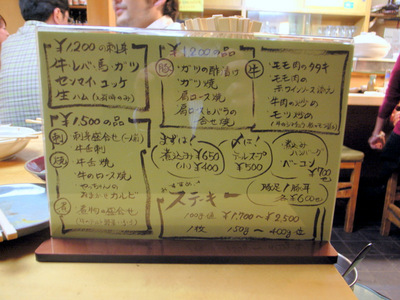 ¥1200の刺身
牛レバ・馬・ガツ
センマイ・ユッケ
生ハム
¥1,500の品
刺 刺身盛合せ
牛舌刺
焼 牛舌焼
牛のロース焼
カルビ
煮 煮物の盛合せ
¥1200の品
豚 ガツの酢漬け
ガツ焼
肩ロース焼
肩ロースとバラの
合せ焼
牛 モモ肉のタタキ
モモ肉の
牛肉の炒め
モツ炒め
まずは!
煮込み ¥650
(小) ¥400
〆に!
テールスープ
¥500
煮込み
ハンバーグ
ベーコン
¥700
豚足/豚耳
各¥600
おすすめ
ステーキ
100g位 ¥1,700〜¥2,500
1枚 150g〜400g位